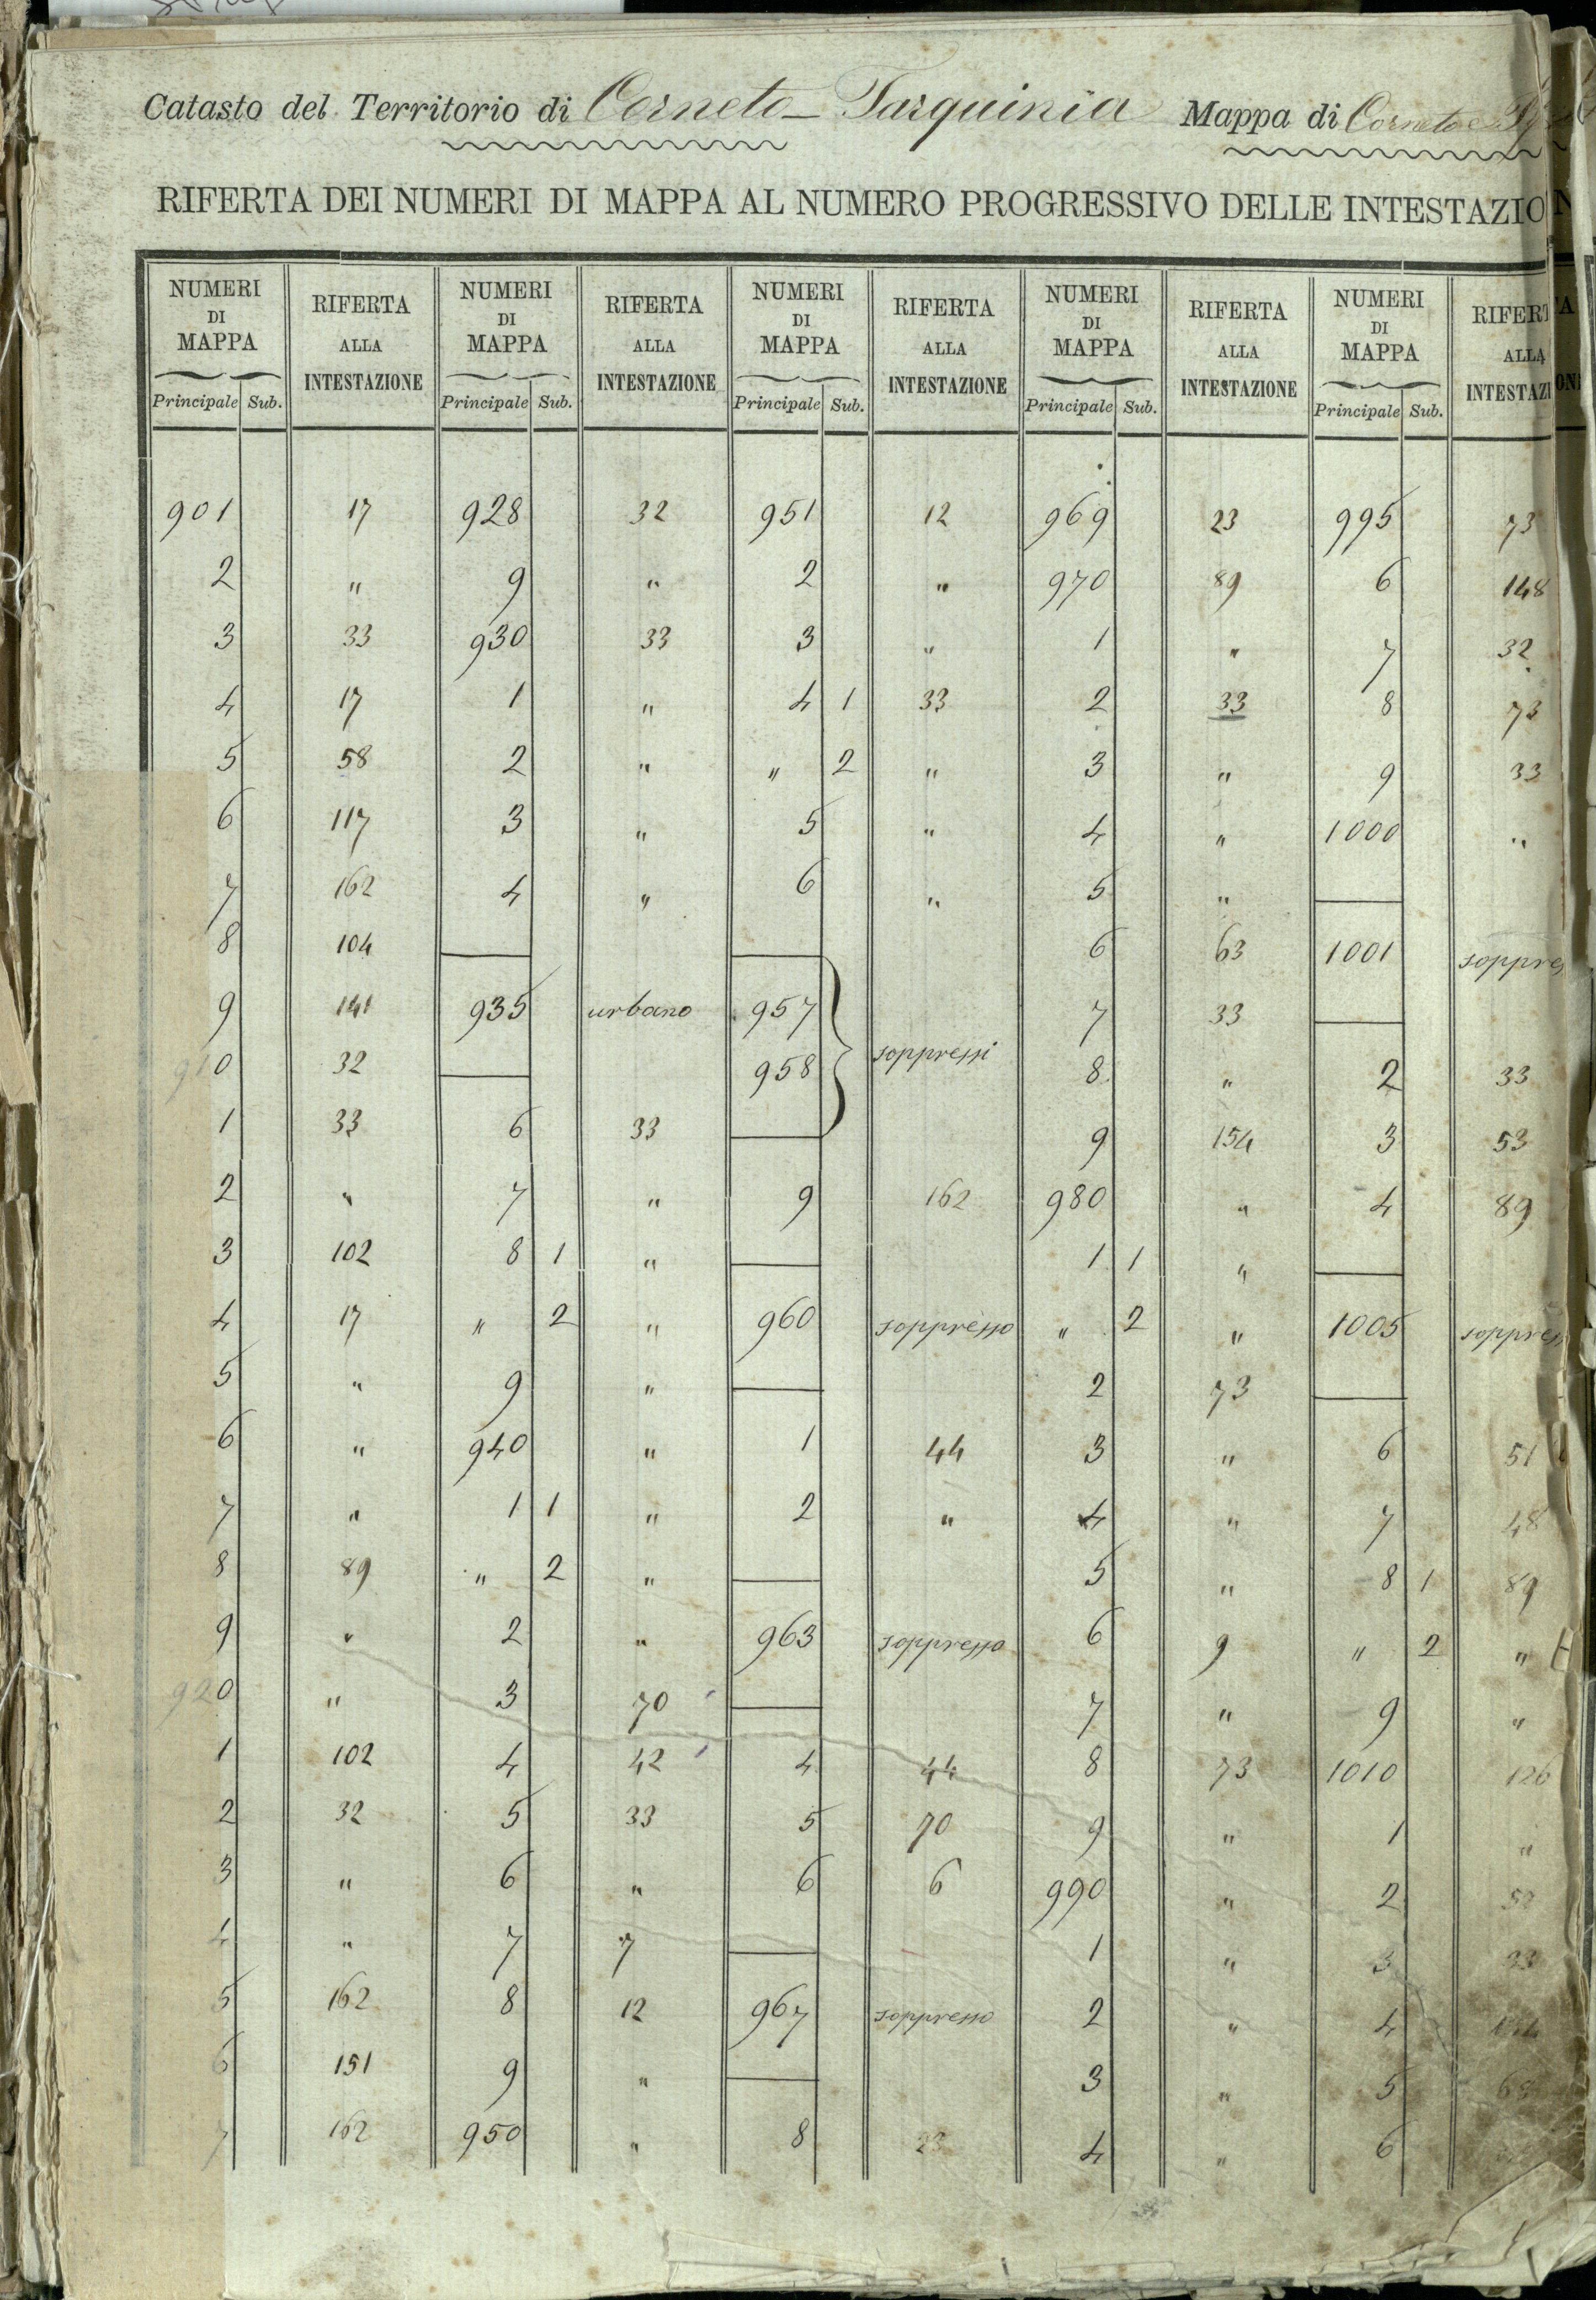 Catasto del Territorio di Corneto - Tarquinia Mappa di Corneto e
RIFERTA DEI NUMERI DI MAPPA AL NUMERO PROGRESSIVO DELLE INTESTAZIO
NUMERI DI MAPPA RIFERTA ALLA INTESTAZIONE NUMERI DI MAPPA RIFERTA ALLA INTESTAZIONE NUMERI DI MAPPA RIFERTA ALLA INTESTAZIONE NUMERI DI MAPPA RIFERTA ALLA INTESTAZIONE NUMERI DI MAPPA RIFERT ALLA INTESTAZI
Principale Sub. Principale Sub. Principale Sub. Principale Sub. Principale Sub.
901 17 928 32 951 12 969 23 995 73
2 " 9 " 2 " 970 89 6 148
3 33 930 33 3 " 1 " 7 32
4 17 1 " 4 1 33 2 33 8 73
5 58 2 " " 2 " 3 " 9 33
6 117 3 " 5 " 4 " 1000 "
7 162 4 " 6 " 5 "
8 104 6 63 1001 soppre
9 141 935 urbano 957 7 33
910 32 958 soppressi 8 " 2 33
1 33 6 33 9 154 3 53
2 " 7 " 9 162 980 " 4 89
3 102 8 1 " 1 1 "
4 17 " 2 " 960 soppresso " 2 " 1005 soppres
5 " 9 " 2 73
6 " 940 " 1 44 3 " 6 51
7 " 1 1 " 2 " 4 " 7 48
8 89 " 2 " 5 " 8 1 89
9 " 2 " 963 soppresso 6 9 " 2 "
920 " 3 70 7 " 9 "
1 102 4 42 4 44 8 73 1010 126
2 32 5 33 5 70 9 " 1 "
3 " 6 " 6 6 990 " 2
4 " 7 7 1 " 3 33
5 162 8 12 967 soppresso 2 " 4
6 151 9 " 3 " 5
7 162 950 " 8 23 4 " 6